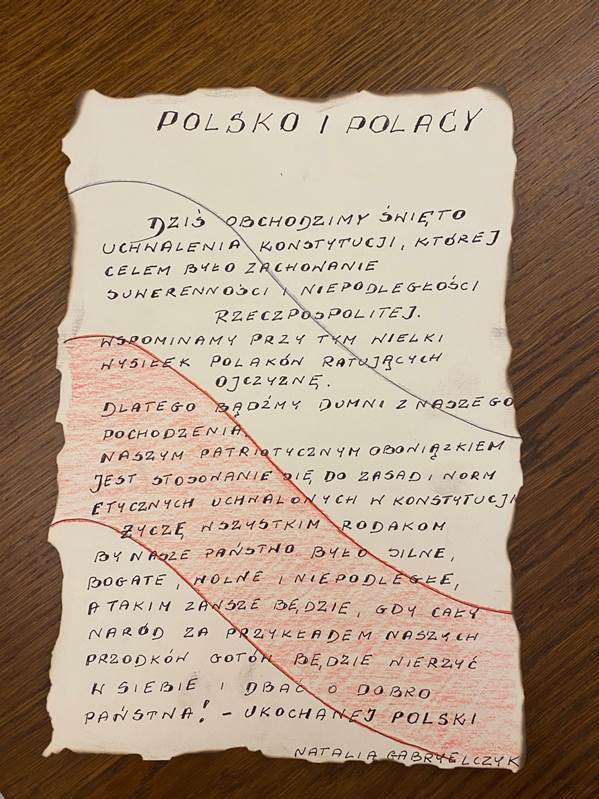 POLSKO I POLACY
DZIŚ OBCHODZIMY ŚWIĘTO
UCHWALENIA KONSTYTUCJI, KTÓREJ
CELEM BYŁO ZACHOWANIE
SUWERENNOŚCI I NIEPODLEGŁOŚCI
RZECZPOSPOLITEJ.
WSPOMINAMY PRZY TYM WIELKI
WYSIŁEK POLAKÓW RATUJĄCYCH
OJCZYZNĘ.
DLATEGO BĄDŹMY DUMNI Z NASZEGO
POCHODZENIA.
NASZYM PATRIOTYCZNYM OBOWIĄZKIEM
JEST STOSOWANIE SIĘ DO ZASAD I NORM
ETYCZNYCH UCHWALONYCH W KONSTYTUCJI
ŻYCZĘ WSZYSTKIM RODAKOM
BY NASZE PAŃSTWO BYŁO SILNE,
BOGATE, WOLNE I NIEPODLEGŁE,
A TAKIM ZAWSZE BĘDZIE, GDY CAŁY
NARÓD ZA PRZYKŁADEM NASZYCH
PRZODKÓW GOTÓW BĘDZIE WIERZYĆ
W SIEBIE I DBAĆ O DOBRO
PAŃSTWA! - UKOCHANEJ POLSKI
NATALIA GABRYELCZYK